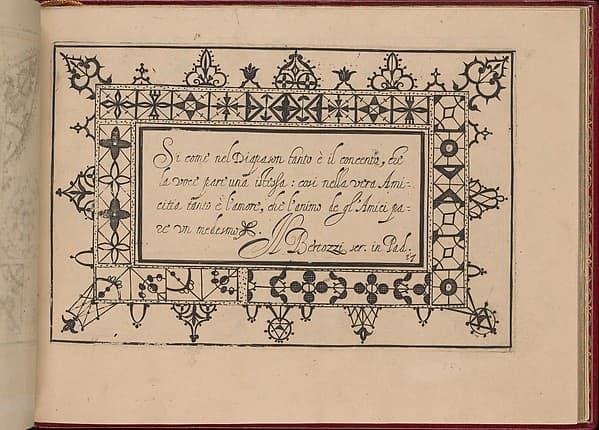 Si come nel Diapason tanto è il concento, che
la voce pare una istessa: cosi nella vera Ami-
citia tanto è l'amore, che l'animo de gl'Amici pa-
re vn medesmo.
Il Bertozzi scr. in Pad.